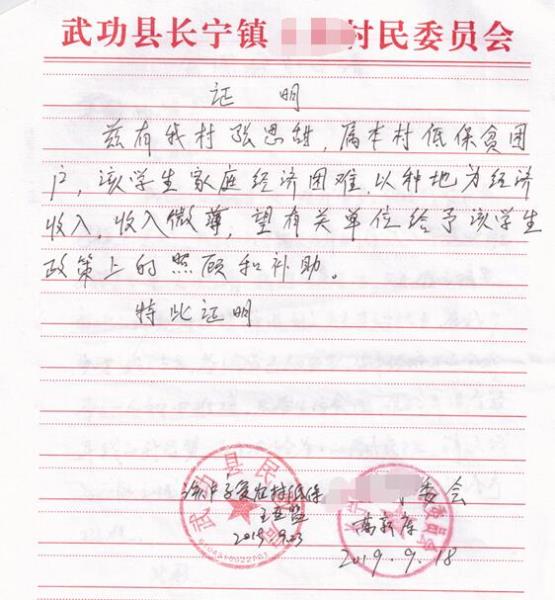 武功县长宁镇 村民委员会
证 明
兹有我村张思甜，属本村低保贫困
户，该学生家庭经济困难，以种地为经济
收入，收入微薄，望有关单位给予该学生
政策上的照顾和补助。
特此证明
武功县民政局
农村低保
王亚盟
2019.9.23
委会
2019.9.18